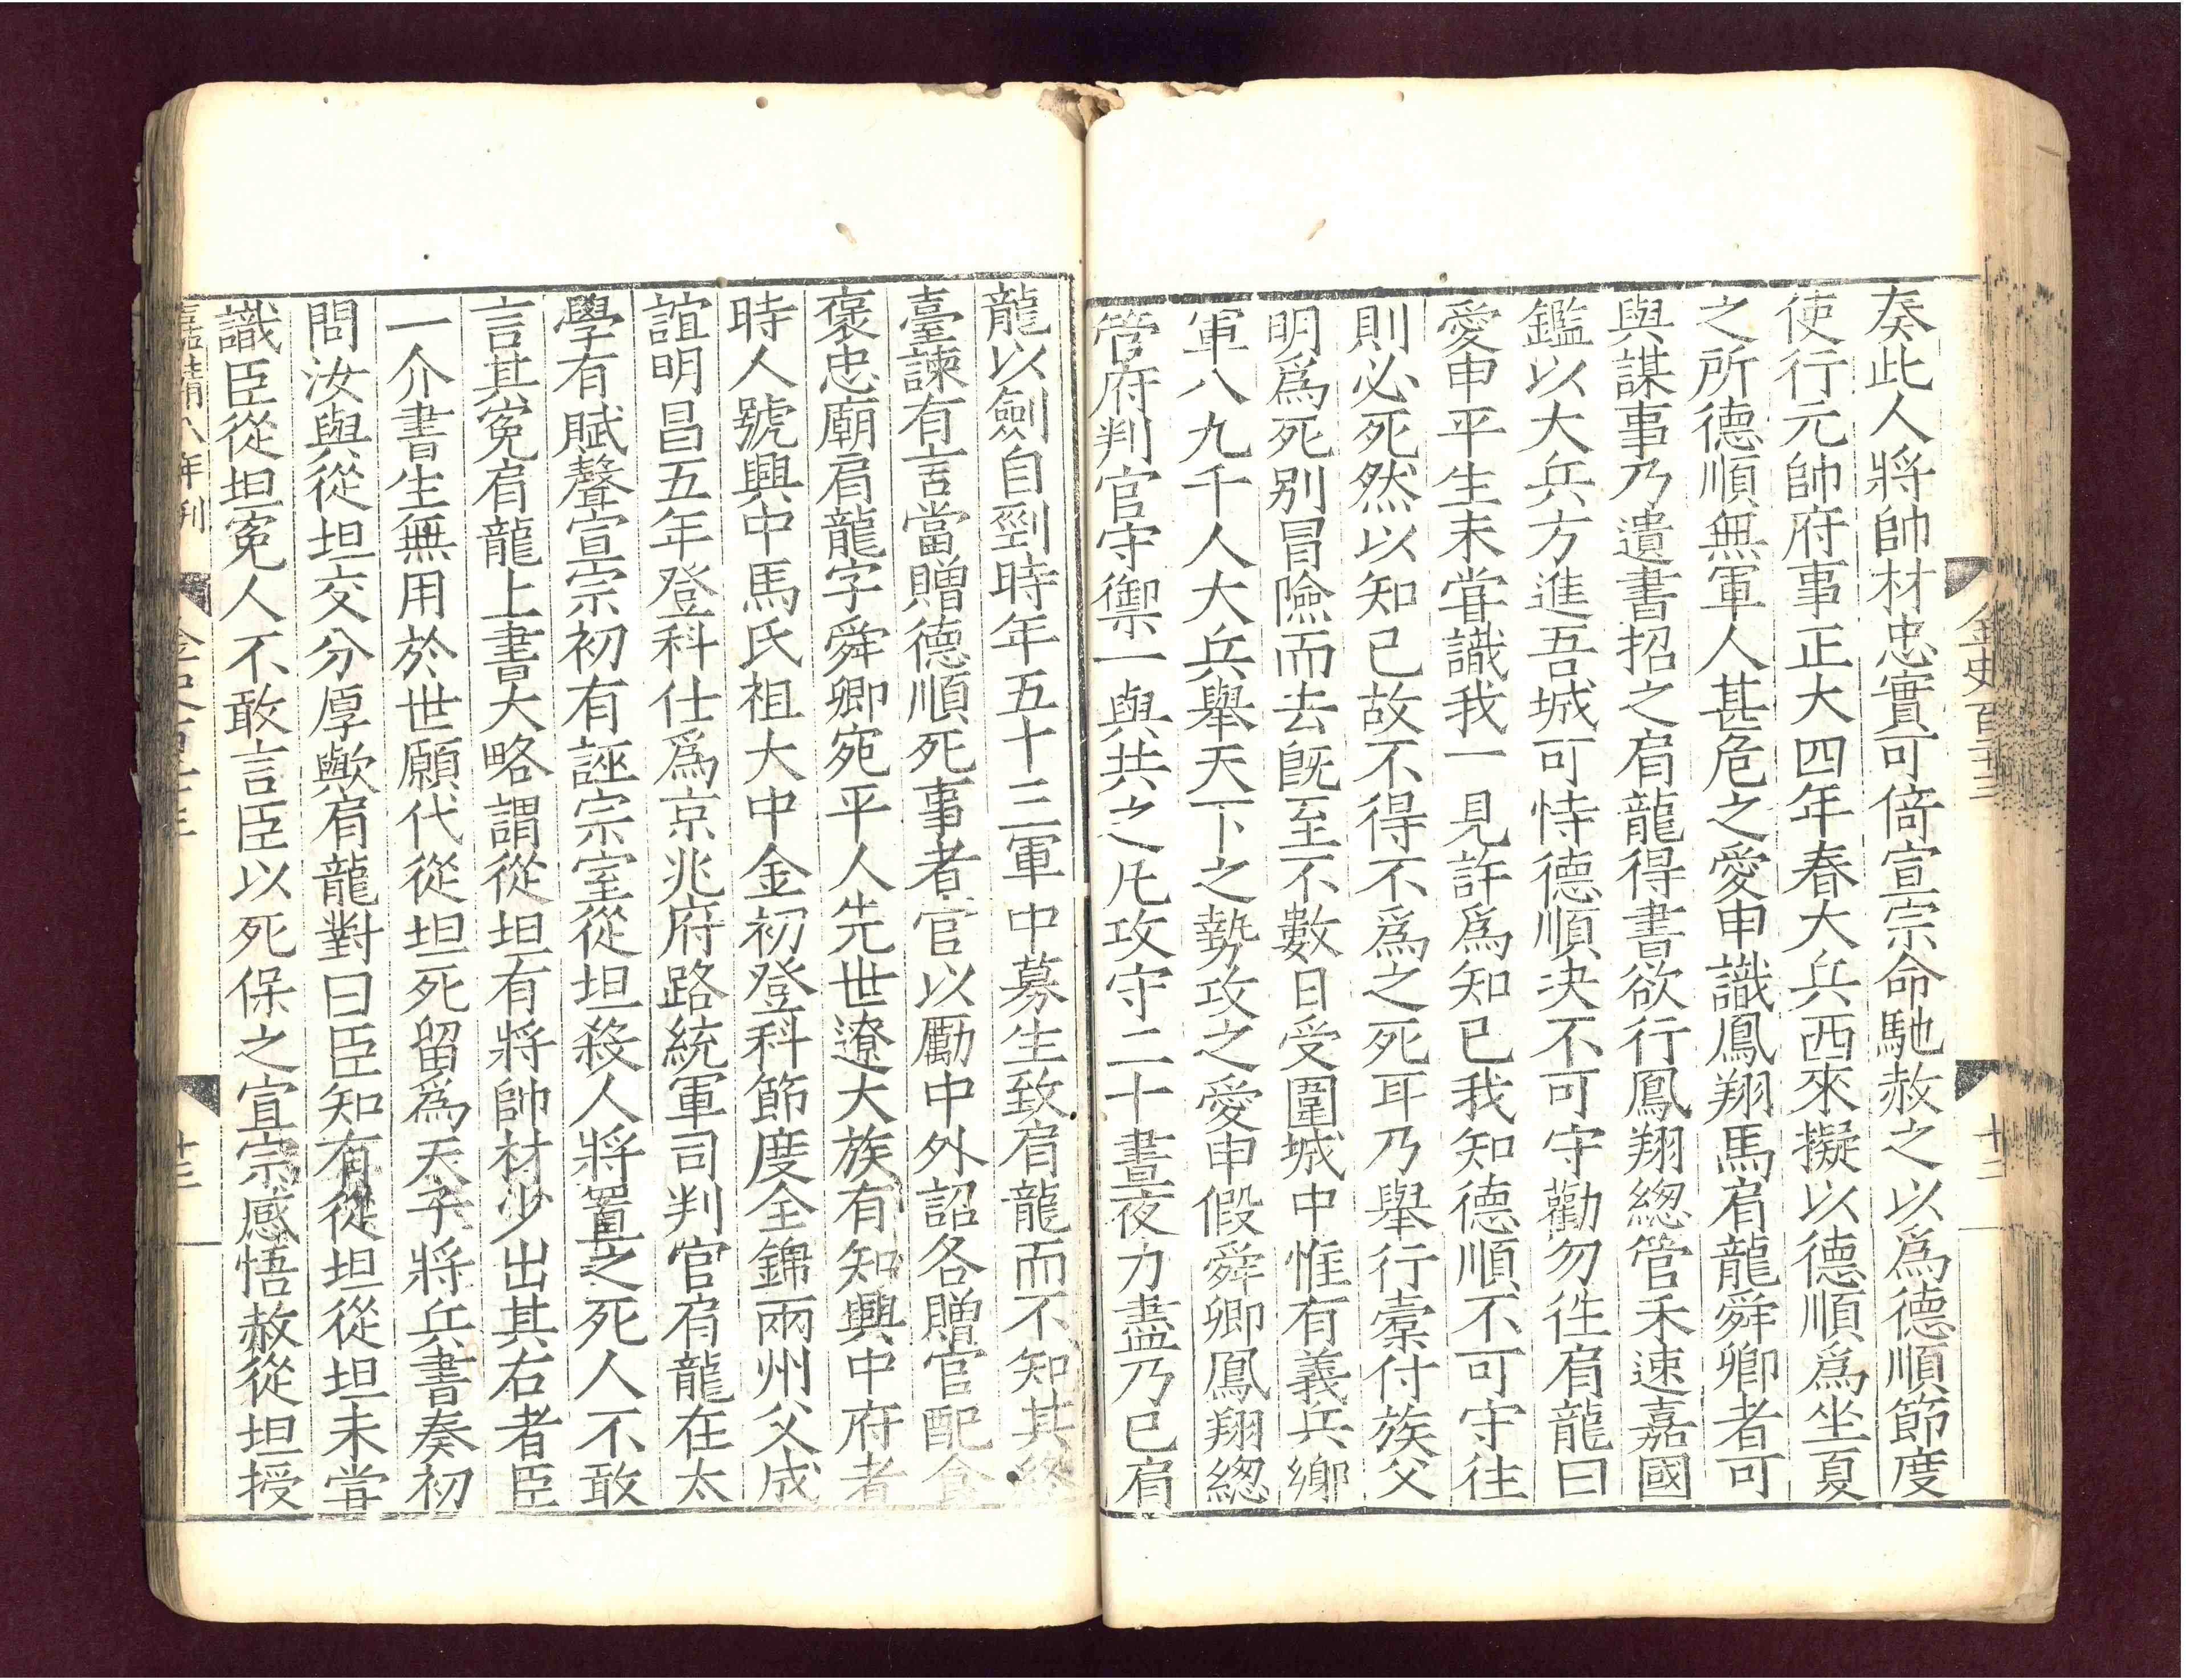 金史百二十三
十二
奏此人將帥材忠實可倚宣宗命馳赦之以爲德順節度
使行元帥府事正大四年春大兵西來擬以德順爲坐夏
之所德順無軍人甚危之愛申識鳳翔馬肩龍舜卿者可
與謀事乃遺書招之肩龍得書欲行鳳翔緫管禾速嘉國
鑑以大兵方進吾城可恃德順決不可守勸勿徃肩龍曰
愛申平生未甞識我一見許爲知已我知德順不可守往
則必死然以知已故不得不爲之死耳乃舉行槖付族父
明爲死别冒險而去旣至不數日受圍城中惟有義兵鄉
軍八九千人大兵舉天下之勢攻之愛申假舜卿鳳翔緫
管府判官守禦一與共之凡攻守二十晝夜力盡乃已肩
龍以劍自剄時年五十三軍中募生致肩龍而不知其終
臺諫有言當贈德順死事者官以勵中外詔各贈官配食
褒忠廟肩龍字舜卿宛平人先世遼大族有知興中府者
時人號興中馬氏祖大中金初登科節度全錦兩州父成
誼明昌五年登科仕爲京兆府路統軍司判官肩龍在太
學有賦聲宣宗初有誣宗室從坦殺人將置之死人不敢
言其寃肩龍上書大略謂從坦有將帥材少出其右者臣
一介書生無用於世願代從坦死留爲天子將兵書奏初
問汝與從坦交分厚歟肩龍對曰臣知有從坦從坦未甞
識臣從坦寃人不敢言臣以死保之宣宗感悟赦從坦授
嘉靖八年刊
金史百二十三
十三